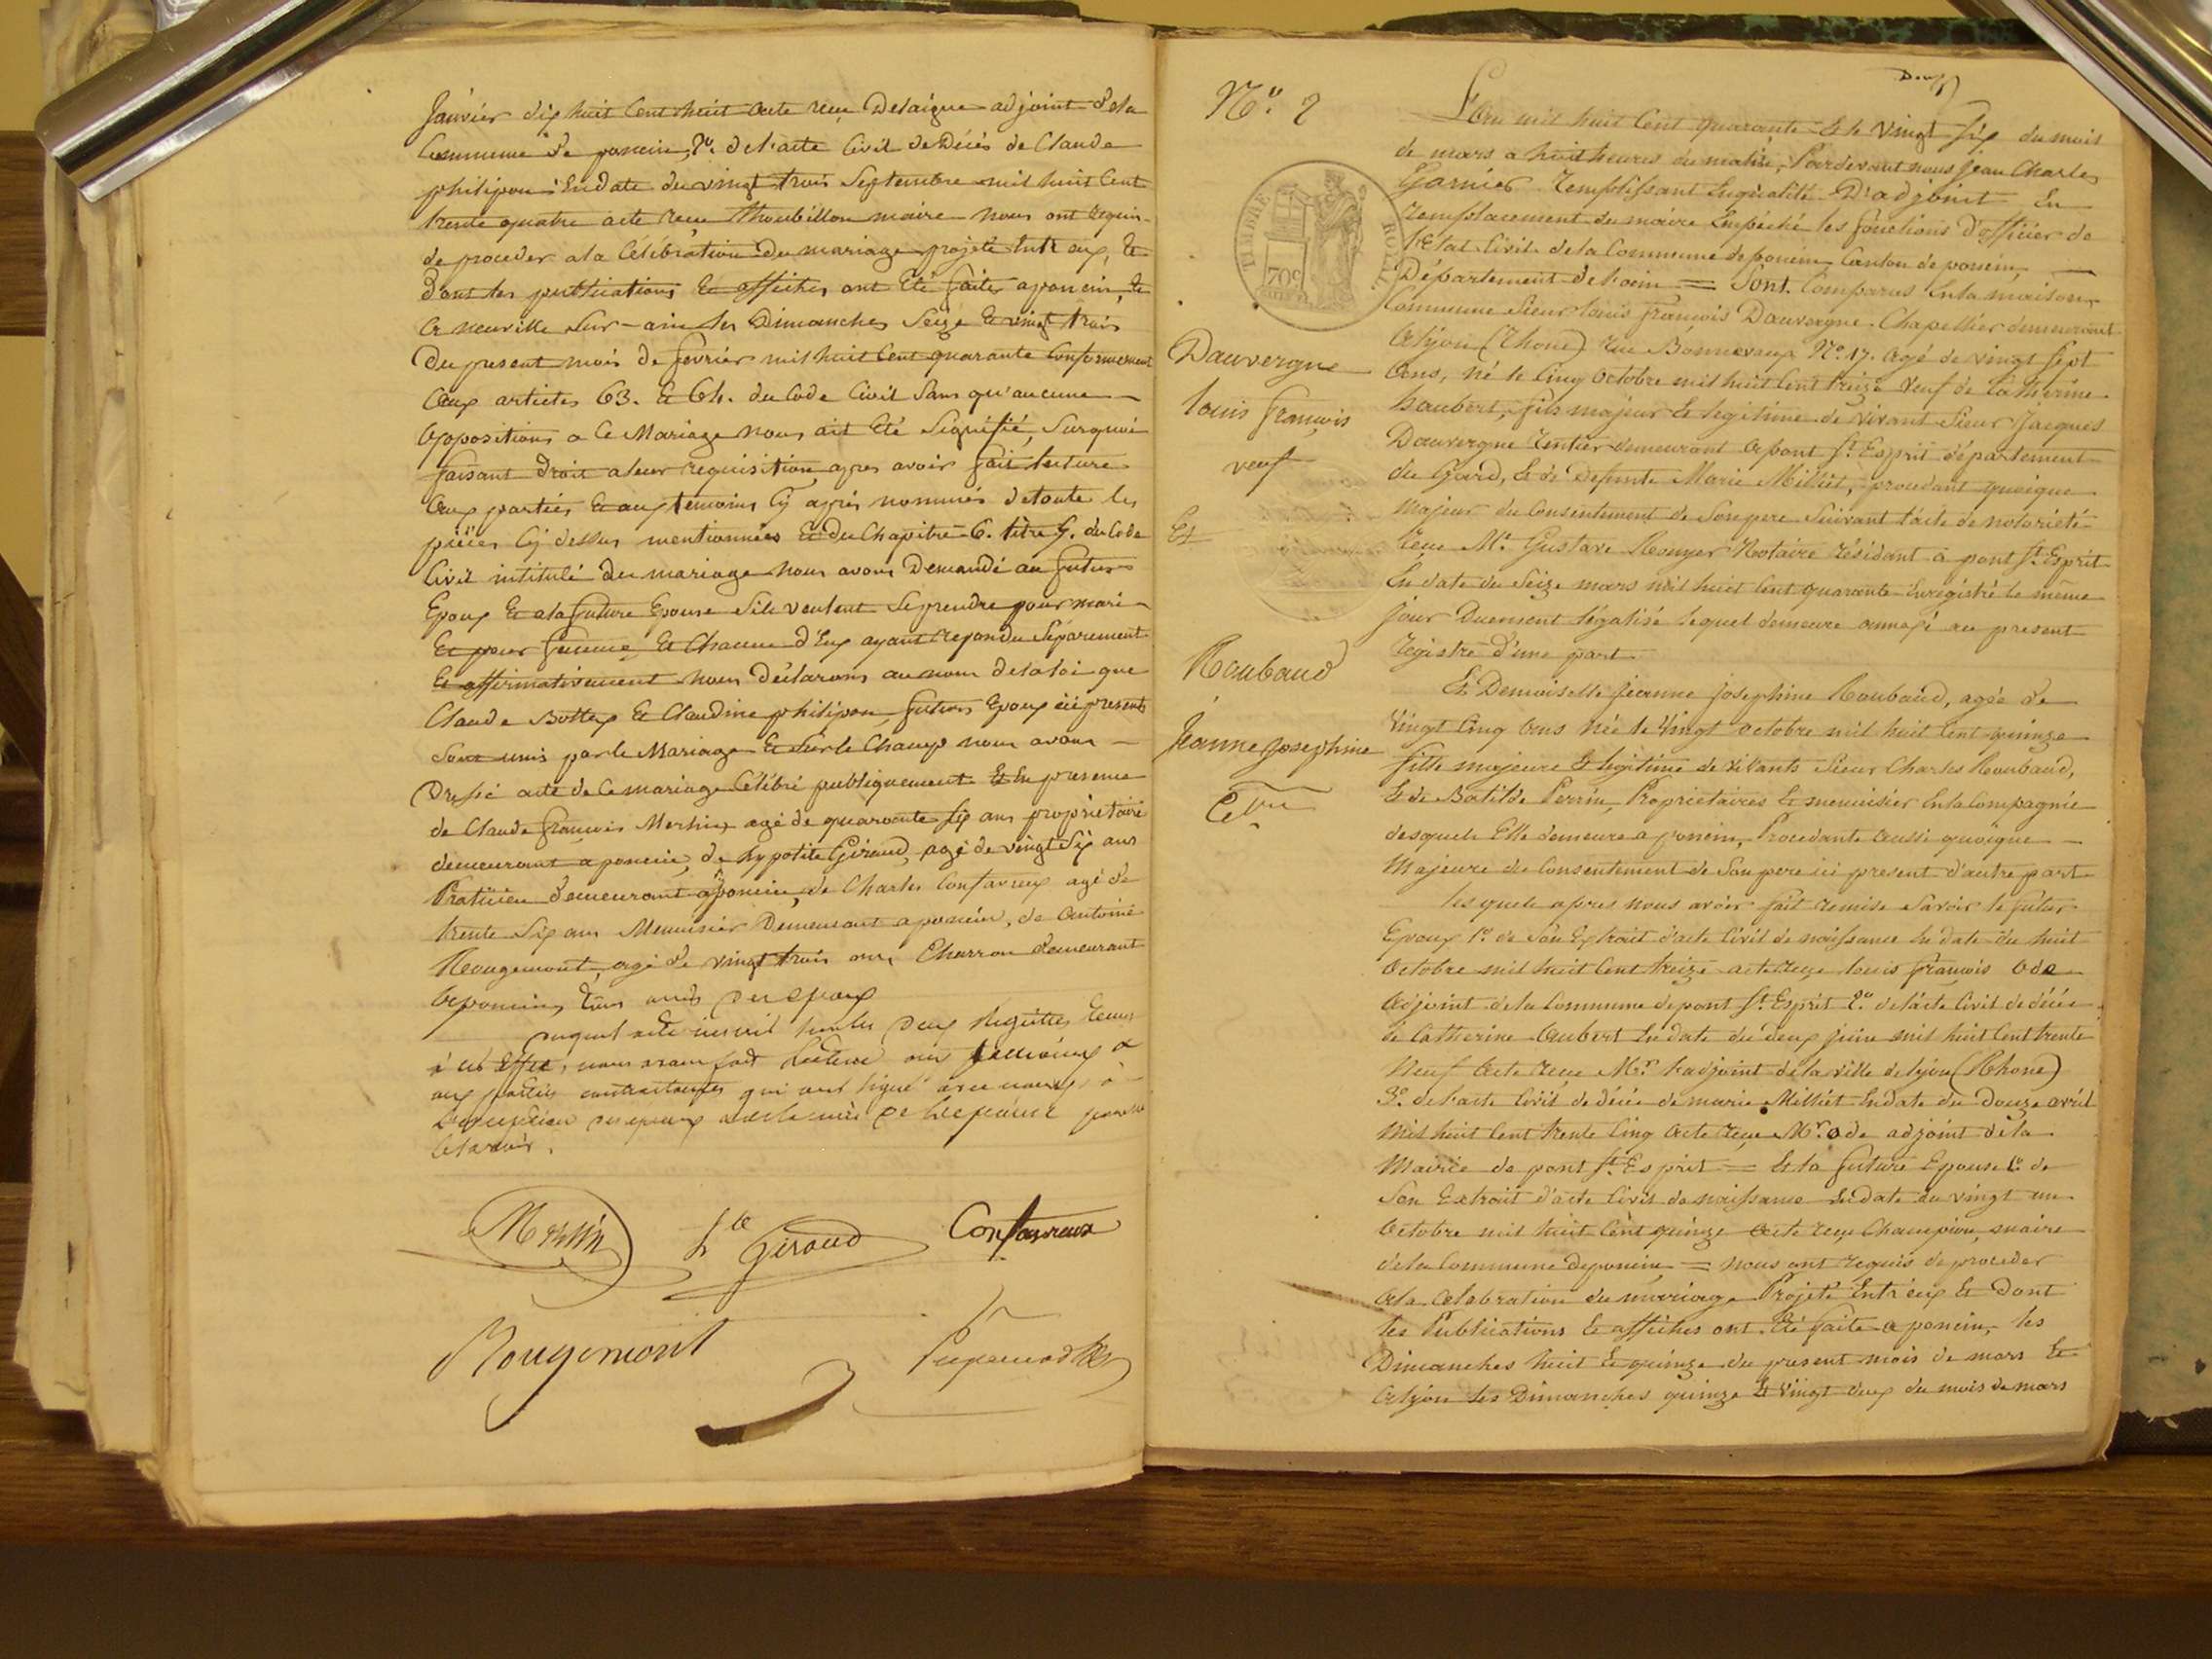 Janvier dix huit Cent huit acte reçu Delaigue adjoint dela
Commune de poncin, 2º. de l'acte Civil de Décès de Claude
philipon Endate du vingt trois Septembre mil huit Cent
trente quatre acte reçu thoubillon maire nous ont requis
de proceder ala Célébration du mariage projeté Entr'eux, Et
dont les publications Et affiches ont Eté faites aponcin, Et
a neuville Sur-ain les Dimanches Seize Et vingt trois
Du present mois de fevrier mil huit Cent quarante Conformement
aux articles 63. Et 64. du Code Civil Sans qu'aucune
opposition a Ce Mariage nous ait Eté Signifié, Surquoi
faisant Droit aleur requisition, apres avoir fait lecture
aux parties Et aux temoins Cy après nommés detoute les
pièces Cy dessus mentionnées Et du Chapitre 6. titre 5. du Code
Civil intitulé du mariage nous avons Demandé au futur
Epoux Et ala future Epouse Sils veulent Seprendre pour mari
Et pour femme, Et Chacun d'Eux ayant repondu Séparement
Et affirmativement nous Déclarons au nom delaloi que
Claude Bottex Et Claudine philipon, futurs Epoux ici présents
Sont unis par le Mariage Et Sur le Champ nous avons
Dressé acte de Ce mariage Célébré publiquement Et En presence
de Claude françois Merlin agé de quarante Six ans propriétaire
demeurant aponcin, de hypolite Giraud, agé de vingt Six ans
Praticien demeurant aponcin, de Charles Confavreux agé de
trente Six ans Menuisier Demeurant aponcin, de Antoine
Rougemont, agé de vingt trois ans, Charron demeurant
aponcin, tous amis des Epoux
acte inscrit sur les deux Registres tenus
à cet Effet, nous avons fait lecture aux temoins &
aux parties contractantes qui ont signé avec nous, à
des epoux de l'epouse pour ne
le savoir.
Merlin hte Giraud Confavreux
Rougemont
Nº. 2
TIMBRE ROYAL
70c
Dauvergne
louis françois
veuf
Et
Roubaud
Jeanne Josephine
L'an mil huit Cent quarante Et le vingt Six du mois
de mars a huit heures du matin, Pardevant nous Jean Charles
Garnier remplissant Enqualité D'adjoint En
remplacement du maire Empêché les fonctions D'officier de
l'Etat Civil de la Commune deponcin Canton de poncin,
Département de l'ain = Sont Comparus Enla maison
Commune Sieur louis françois Dauvergne Chapellier demeurant
alyon (Rhone) rue Bonnevaux Nº. 17. agé de vingt Sept
ans, né le Cinq octobre mil huit Cent treize veuf de Catherine
haubert, fils majeur Et legitime de vivant Sieur Jacques
Dauvergne rentier demeurant apont St. Esprit département
du Gard, Et de Defunte Marie Milliet, procedant quoique
Majeur du Consentement de Sonpere Suivant l'acte de notorieté
reçu Me. Gustave Rouyer Notaire résidant à pont St. Esprit
En date du Seize mars mil huit Cent quarante Enrégistré le même
jour Duement légalisé lequel demeure annexé au present
registre d'une part
Et Demoiselle jeanne josephine Roubaud, agée de
vingt Cinq ans née le vingt octobre mil huit Cent quinze
fille majeure Et legitime de vivants Sieur Charles Roubaud,
Et de Batilde Perrin, Proprietaires Et menuisier Enla Compagnie
desquels Elle demeure a poncin, Procedante aussi quoique
Majeure du Consentement de Son pere ici present d'autre part
lesquels apres nous avoir fait remise Savoir le futur
Epoux 1º. de Son Extrait d'acte Civil de naissance En date du huit
octobre mil huit Cent treize acte reçu louis françois ode
adjoint dela Commune depont St. Esprit 2º. de l'acte Civil de décès
de Catherine aubert En date du deux juin mil huit Cent trente
Neuf acte reçu Mr. l'adjoint dela ville delyon (Rhone)
3º. de l'acte Civil de décès de marie Milliet En date du douze avril
Mil huit Cent trente Cinq acte reçu Mr. ode adjoint dela
Mairie de pont St. Esprit = Et la future Epouse 1º de
Son Extrait d'acte Civil de naissance En date du vingt un
octobre mil huit Cent quinze acte reçu Champion, maire
dela Commune deponcin = nous ont requis deproceder
ala Celebration du mariage Projeté Entr'eux Et dont
les Publications Et affiches ont Eté faite a poncin, les
Dimanches huit Et quinze du present mois de mars Et
alyon les Dimanches quinze Et vingt deux du mois de mars